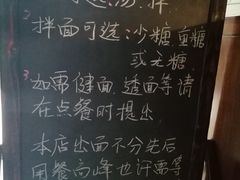 拌面可选:少糖 重糖
或无糖
3 如需健面.透面等请
在点餐时提出
本店出面不分先后
用餐高峰也许需等